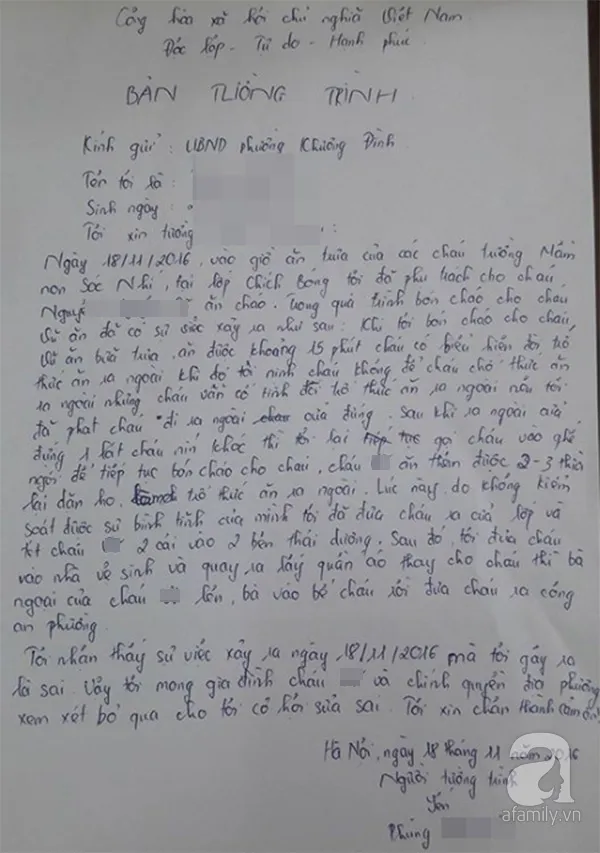 Cộng hòa xã hội chủ nghĩa Việt Nam
Độc lập - Tự do - Hạnh phúc
BẢN TƯỜNG TRÌNH
Kính gửi : UBND phường Khương Đình
Tên tôi là :
Sinh ngày :
Tôi xin tường :
Ngày 18/11/2016, vào giờ ăn trưa của các cháu trường Mầm
non Sóc Nhí, tại lớp Chích Bông tôi đã phụ trách cho cháu
Nguyễ ăn cháo. Trong quá trình bón cháo cho cháu
ăn đã có sự việc xảy ra như sau: Khi tôi bón cháo cho cháu
ăn bữa trưa, ăn được khoảng 15 phút cháu có biểu hiện đòi trớ
thức ăn ra ngoài khi đó tôi nịnh cháu không để cháu chớ thức ăn
ra ngoài nhưng cháu vẫn cố tình đòi trớ thức ăn ra ngoài nên tôi
đã phạt cháu đi ra ngoài cửa đứng. Sau khi ra ngoài cửa
đứng 1 lát cháu nín khóc thì tôi lại tiếp tục gọi cháu vào ghế
ngồi để tiếp tục bón cháo cho cháu, cháu ăn thêm được 2-3 thìa
lại dặn ho, trớ thức ăn ra ngoài. Lúc này do không kiểm
soát được sự bình tĩnh của mình tôi đã đưa cháu ra cửa lớp và
tát cháu 2 cái vào 2 bên thái dương. Sau đó, tôi đưa cháu
vào nhà vệ sinh và quay ra lấy quần áo thay cho cháu thì bà
ngoại của cháu lên, bà vào bế cháu rồi đưa cháu ra công
an phường.
Tôi nhận thấy sự việc xảy ra ngày 18/11/2016 mà tôi gây ra
là sai. Vậy tôi mong gia đình cháu và chính quyền địa phương
xem xét bỏ qua cho tôi cơ hội sửa sai. Tôi xin chân thành cảm ơn!
Hà Nội, ngày 18 tháng 11 năm 2016
Người tường trình
Yến
Phùng
a
afamily.vn